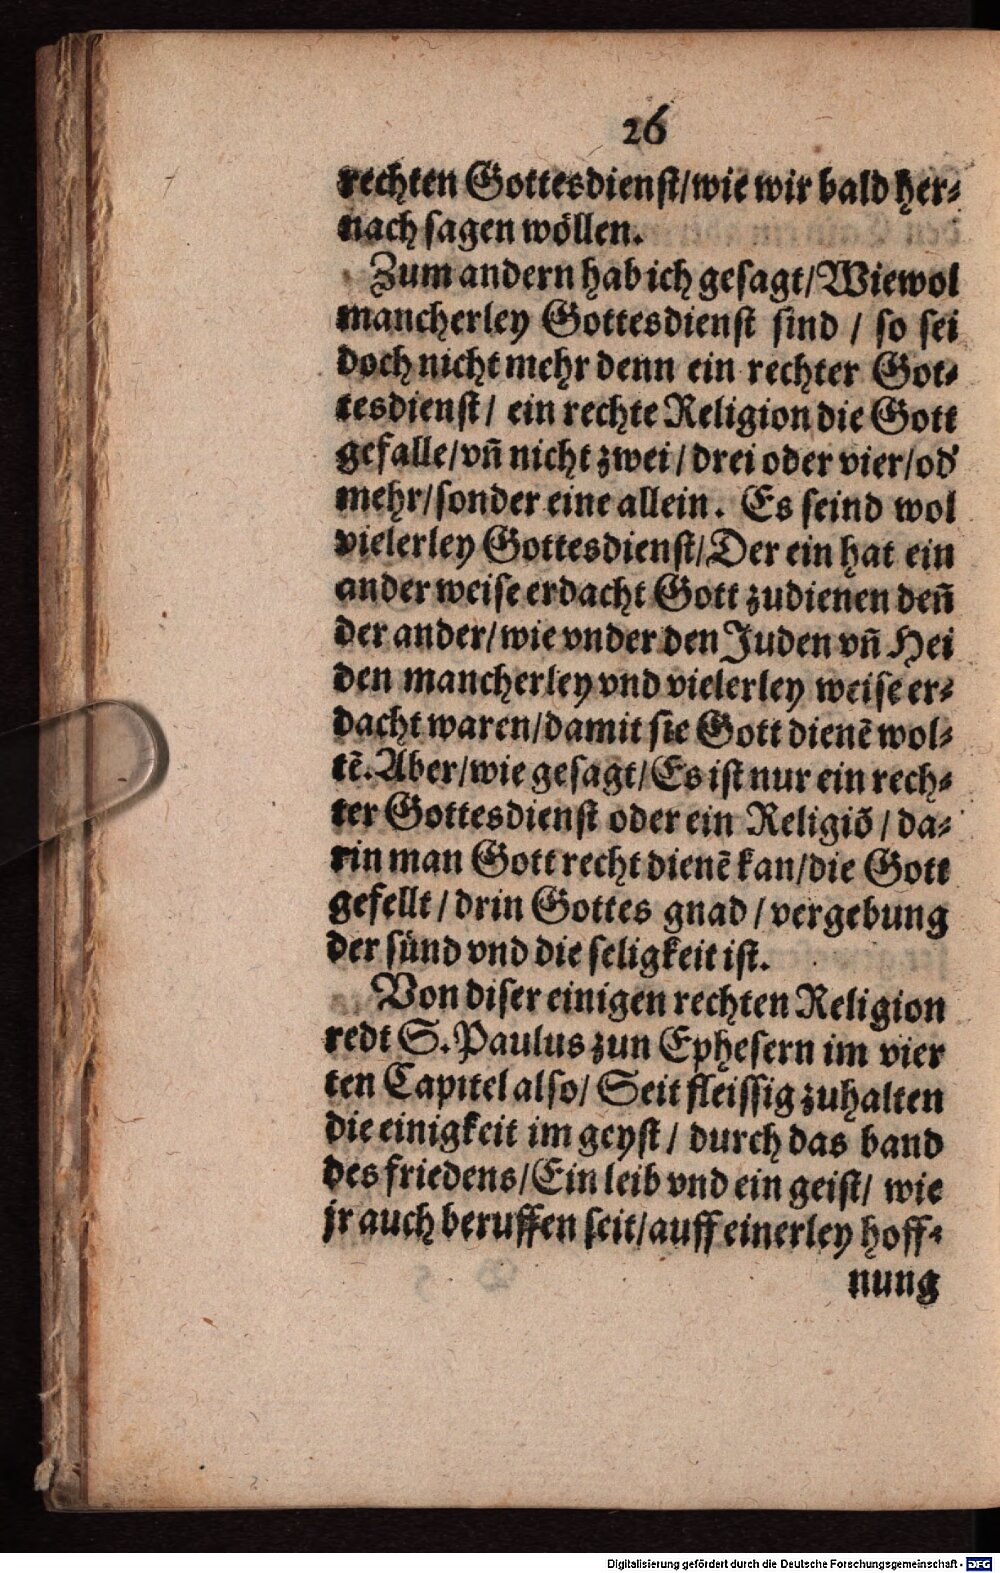 26
rechten Gottesdienst/wie wir bald her⸗
nach sagen wöllen.
Zum andern hab ich gesagt/Wiewol
mancherley Gottesdienst sind / so sei
doch nicht mehr denn ein rechter Got⸗
tesdienst/ ein rechte Religion die Gott
gefalle/vñ nicht zwei/drei oder vier/od'
mehr/sonder eine allein. Es seind wol
vielerley Gottesdienst/Der ein hat ein
ander weise erdacht Gott zudienen deñ
der ander/wie vnder den Juden vñ Hei
den mancherley vnd vielerley weise er⸗
dacht waren/damit sie Gott dienẽ wol⸗
tẽ. Aber/wie gesagt/Es ist nur ein rech⸗
ter Gottesdienst oder ein Religiõ / da⸗
rin man Gott recht dienẽ kan/die Gott
gefellt/drin Gottes gnad/vergebung
der sünd vnd die seligkeit ist.
Von diser einigen rechten Religion
redt S. Paulus zun Ephesern im vier
ten Capitel also/ Seit fleissig zuhalten
die einigkeit im geyst/ durch das band
des friedens/Ein leib vnd ein geist/ wie
jr auch beruffen seit/auff einerley hoff⸗
nung
Digitalisierung gefördert durch die Deutsche Forschungsgemeinschaft - DFG